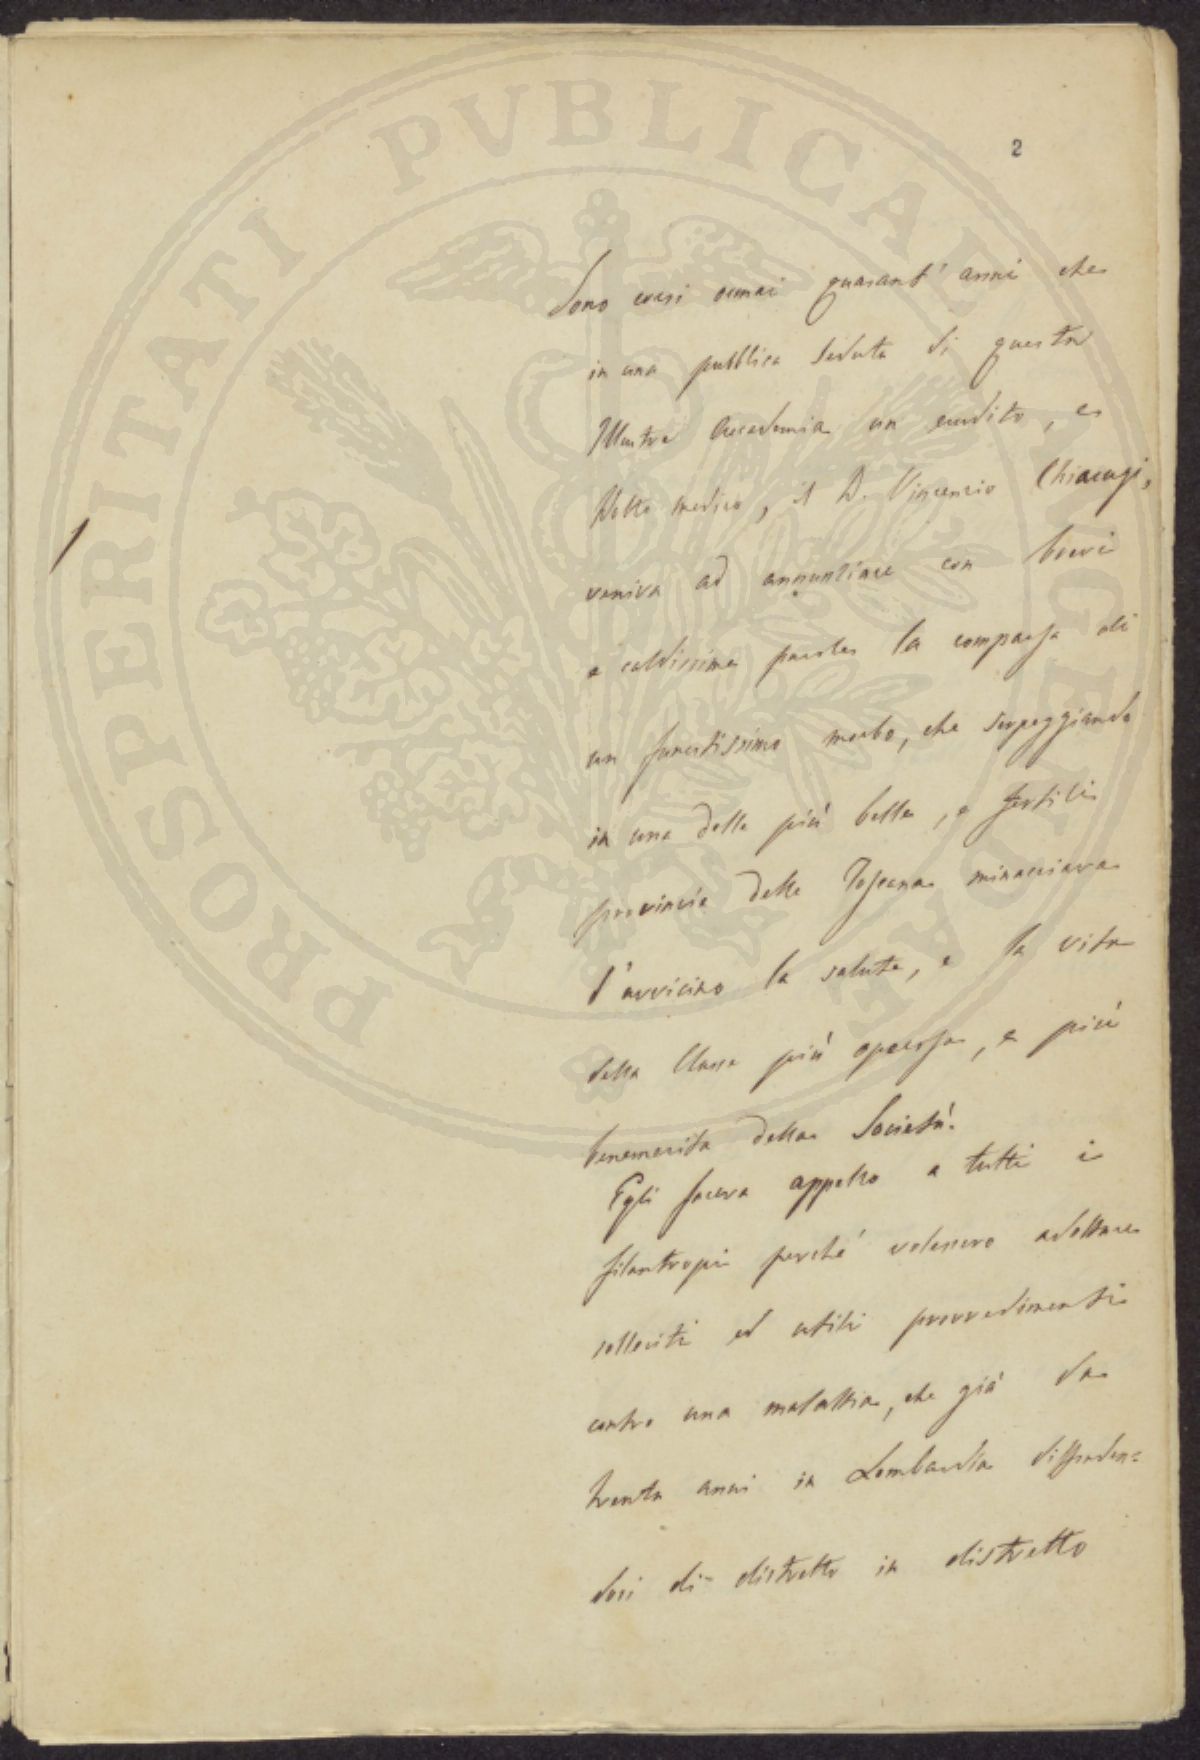 2
Sono corsi ormai quarant' anni che
in una pubblica seduta di questa
Illustre Accademia un erudito, e
Dotto medico, il D. Vincenzio Chiarugi,
veniva ad annunziare con brevi
e caldissime parole la comparsa di
un funestissimo morbo, che serpeggiando
in una delle più belle, e fertili
provincie della Toscana minacciava
d'avvicino la salute, e la vita
della Classe più operosa, e più
benemerita della Società.
Egli faceva appello a tutti i
filantropi perché volessero adottare
solleciti ed utili provvedimenti
contro una malattia, che già da
trenta anni in Lombardia diffonden=
dosi di distretto in distretto
PROSPERITATI PVBLICAE AVGENDAE